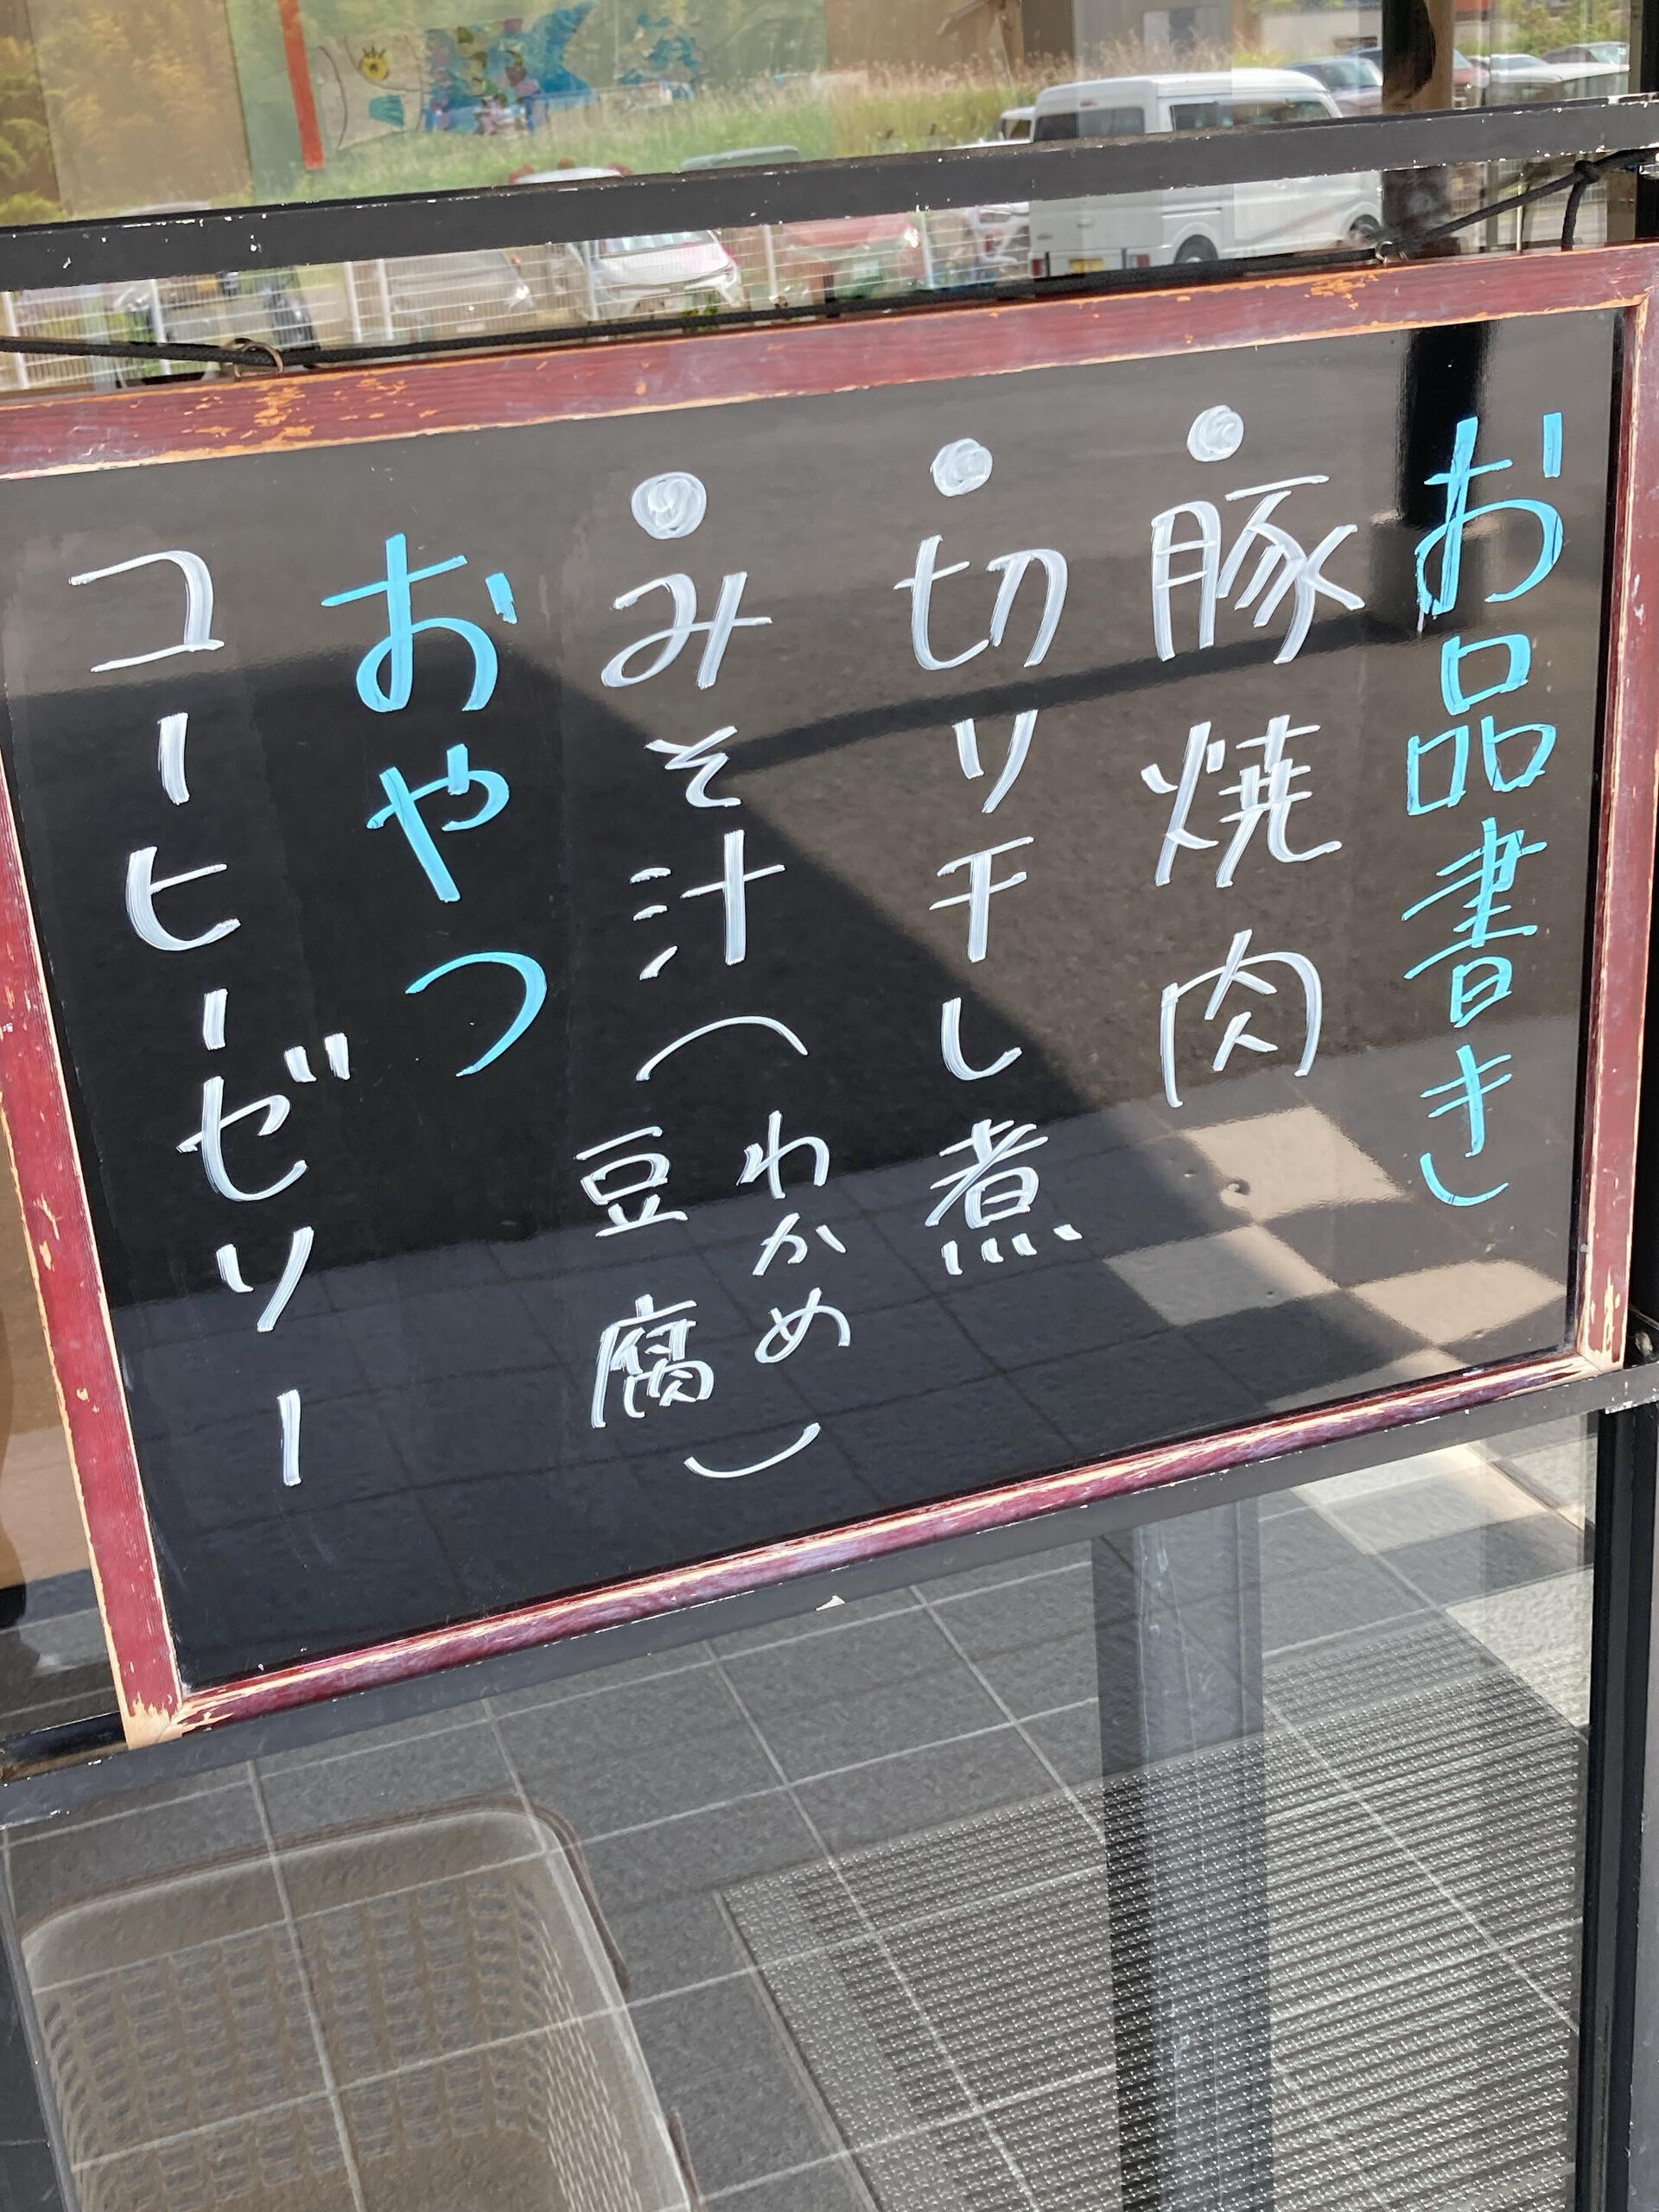 お品書き
● 豚焼肉
● 切り干し煮
● みそ汁（わかめ 豆腐）
おやつ
コーヒーゼリー